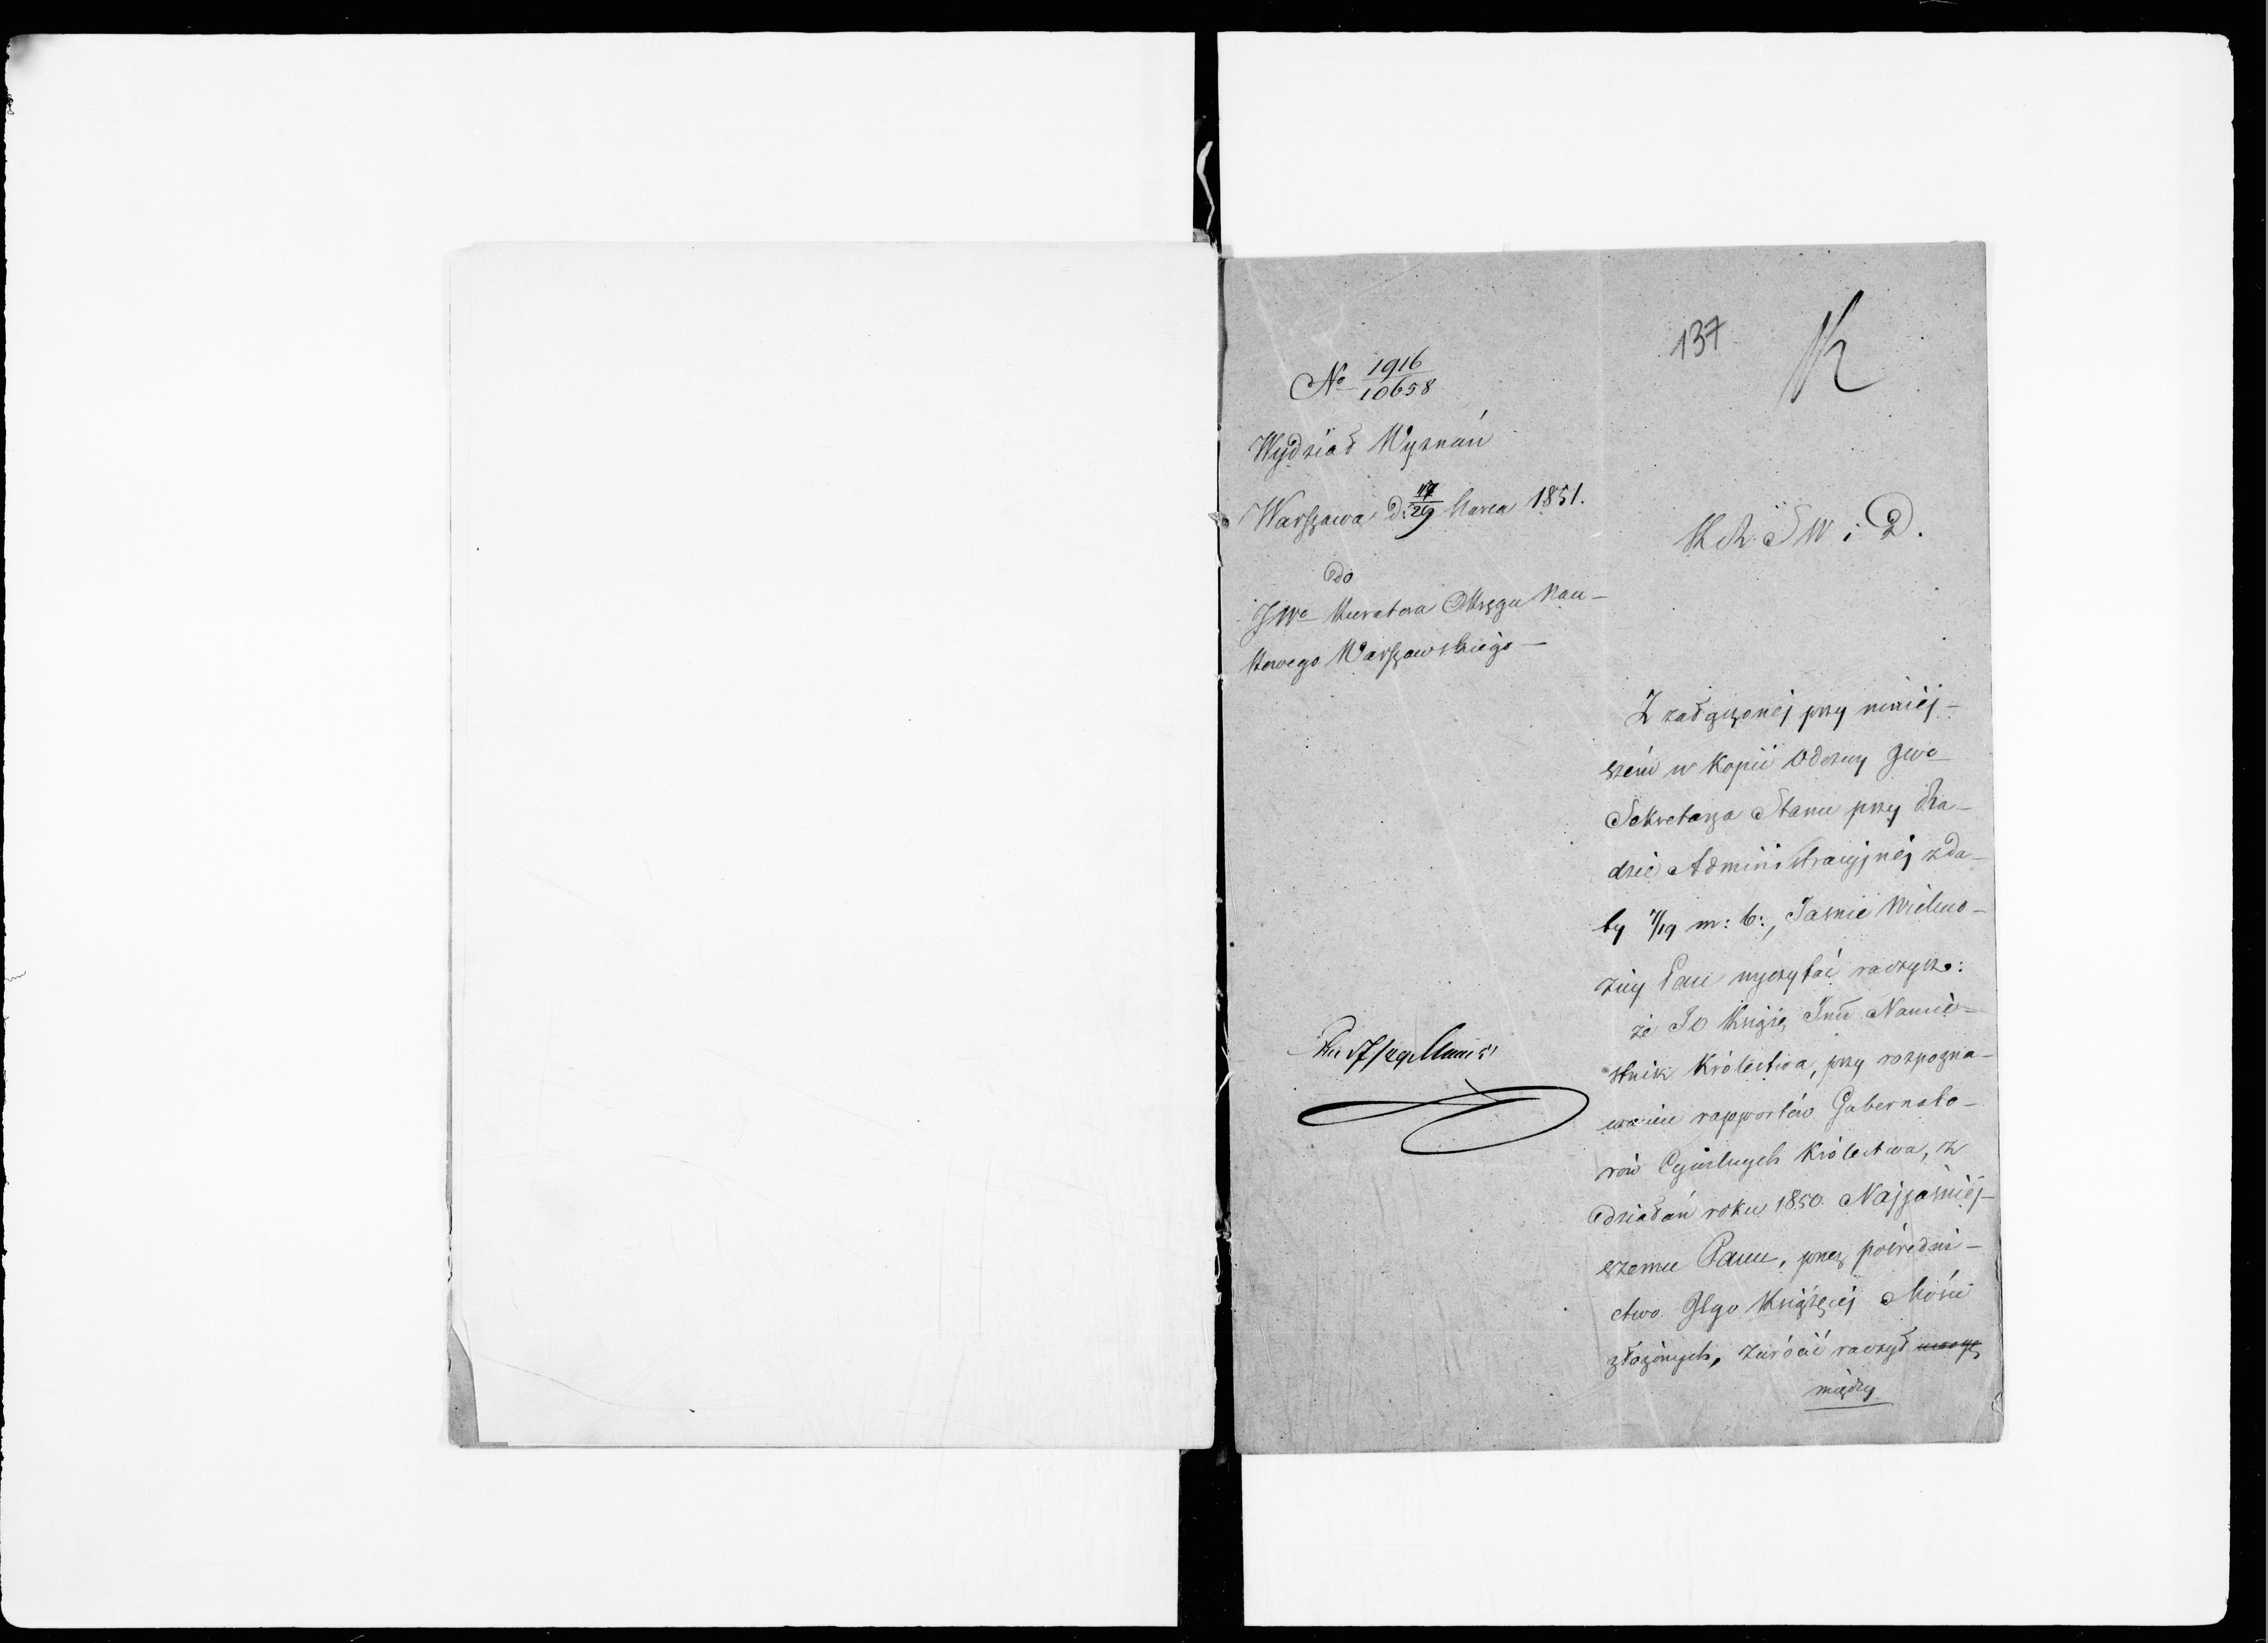 137 K
No 1916/10658
Wydział Wyznań
Warszawa d: 17/29 Marca 1851.
K R S W i D.
Do
JWo Kuratora Okręgu Nau-
kowego Warszawskiego
Z załączonej przy niniej-
szém w kopii Odezwy JWo
Sekretarza Stanu przy Ra-
dzie Administracyjnéj z da-
ty 7/19 m: b:, Jaśnie Wielmo-
żny Pan wyczytać raczysz:
że JO Książę Namie-
stnik Królestwa, przy rozpozna-
waniu rapportów Gubernato-
rów Cywilnych Królestwa, z
działań roku 1850. Najjaśniéj-
szemu Panu, przez pośredni-
ctwo Jego Książęcéj Mości
złożonych, zwrócić raczył uwagę
między